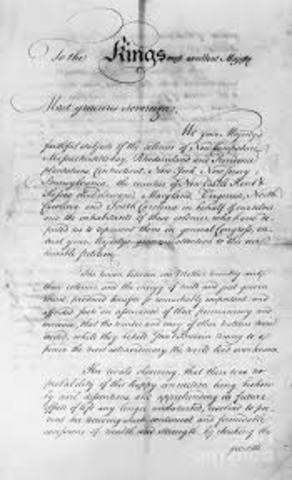 To the Kings most excellent Majesty
Most gracious Sovereign,
We your Majesty's
faithful subjects of the colonies of New Hampshire,
Massachusetts bay, Rhode island and Providence
plantations, Connecticut, New York, New Jersey,
Pennsylvania, the counties of New Castle Kent &
Sussex on Delaware, Maryland, Virginia, North
Carolina and South Carolina in behalf of ourselves
and the inhabitants of these colonies, who have de
puted us to represent them in general Congress, en
treat your Majestys gracious attention to this our
humble petition.
The union between our Mother country and
these colonies, and the energy of mild and just govern
ment, produced benefits so remarkably important, and
afforded such an assurance of their permanency and
increase, that the wonder and envy of other Nations were
excited, while they beheld Great Britain riseing to a
power the most extraordinary the world had ever known.
Her rivals observing, that there was no
probability of this happy connection being broken
by civil dissentions, and apprehending its future
effects, if left any longer undisturbed, resolved to pre
vent her receiving such continual and formidable
accessions of wealth and strength, by checking the
growth